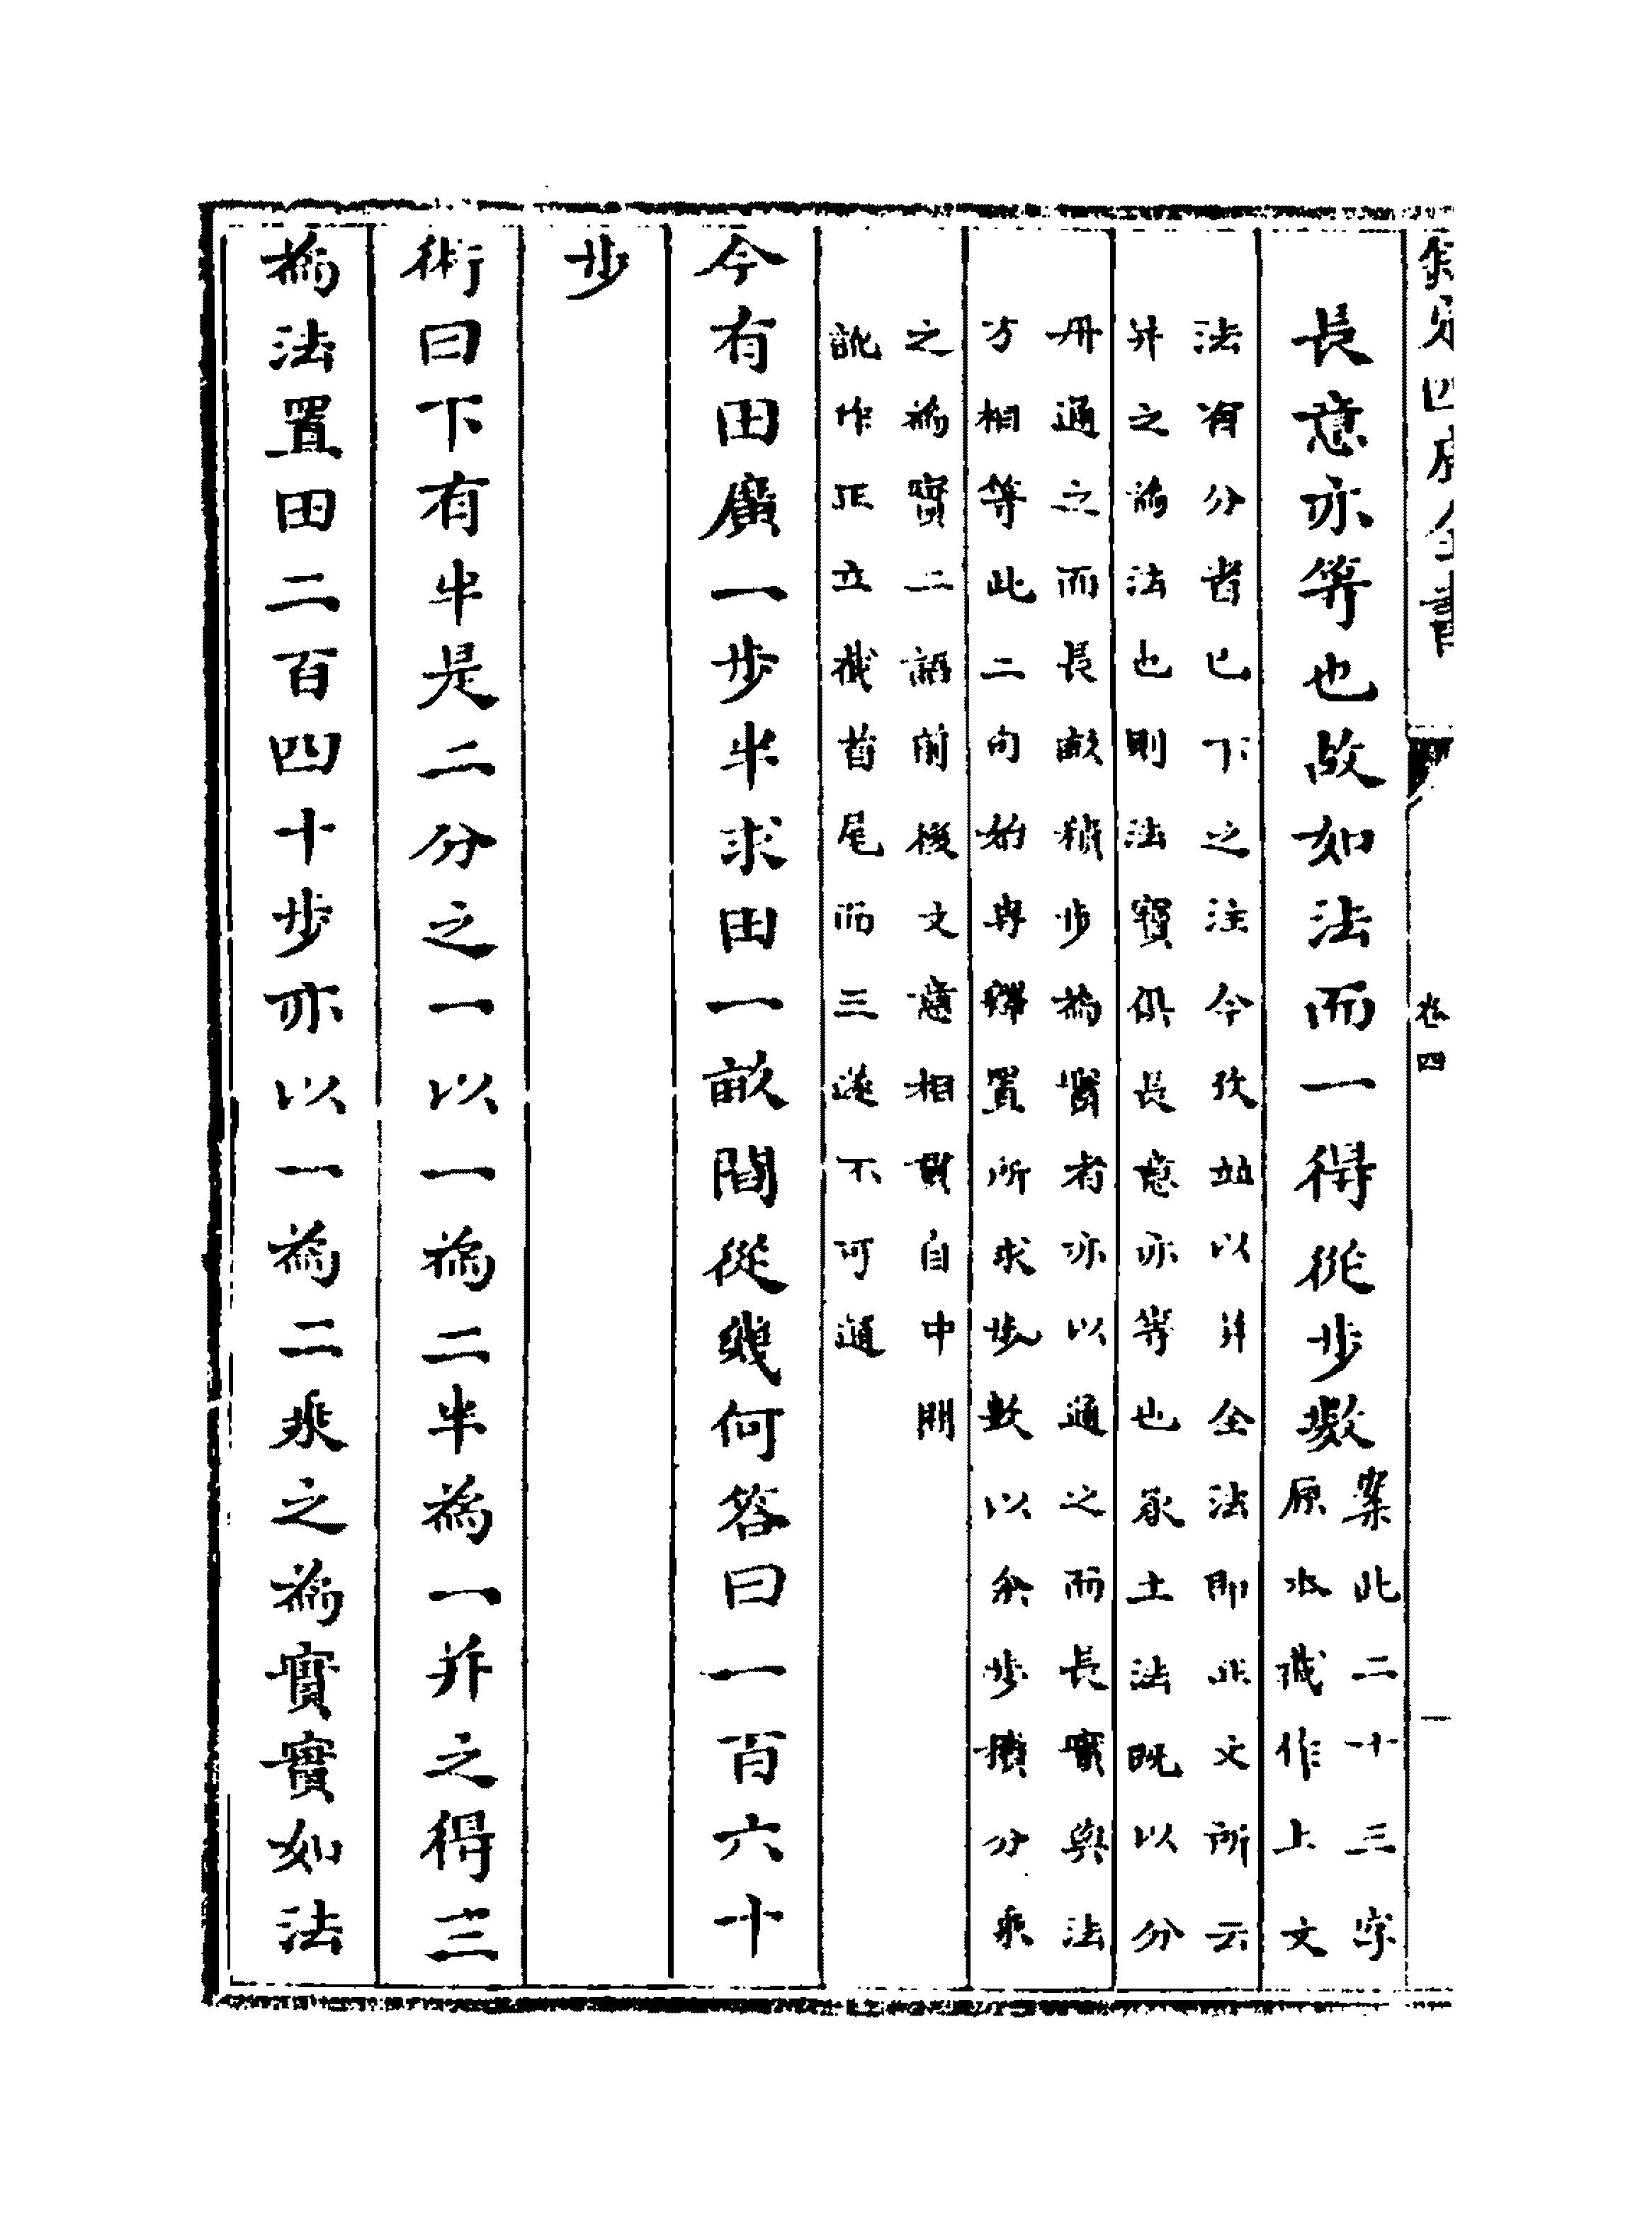 欽定四庫全書
卷四
一
長意亦等也故如法而一得從步數案此二十三字
原本譌作上文
法有分者已下之注今攷竝以并全法即此文所云
并之為法也則法實俱長意亦等也承土法既以分
母通之而長畝積步為實者亦以通之而長實與法
方相等此二句始專釋置所求步數以分步積分乘
之為實二語前後文意相貫自中間
訛作正立截首尾而三遂不可通
今有田廣一步半求田一畝問從幾何答曰一百六十
步
術曰下有半是二分之一以一為二半為一并之得三
為法置田二百四十步亦以一為二乘之為實實如法